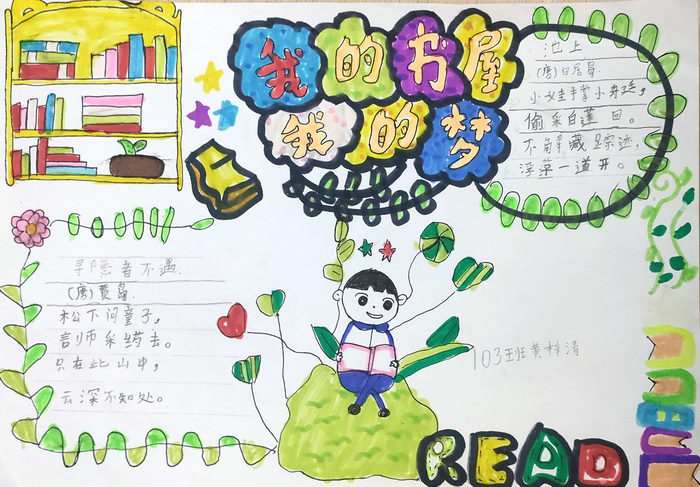 我的书屋
我的梦
池上
(唐)白居易
小娃撑小艇,
偷采白莲回。
不解藏踪迹,
浮萍一道开。
寻隐者不遇
(唐)贾岛
松下问童子,
言师采药去。
只在此山中,
云深不知处。
103班黄梓清
READ